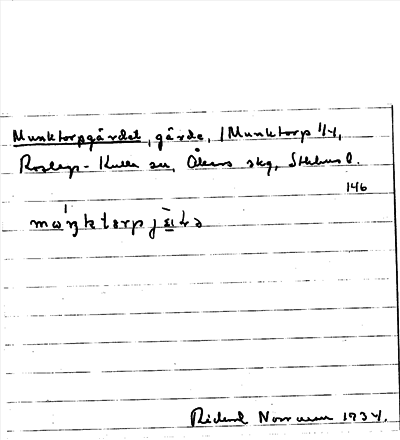 Munktorpgärdet, gärde, /Munktorp 1/4,
Roslags-Kulla sn, Åkers skg, Sthlms l.
146
Rickard Norrman 1934.